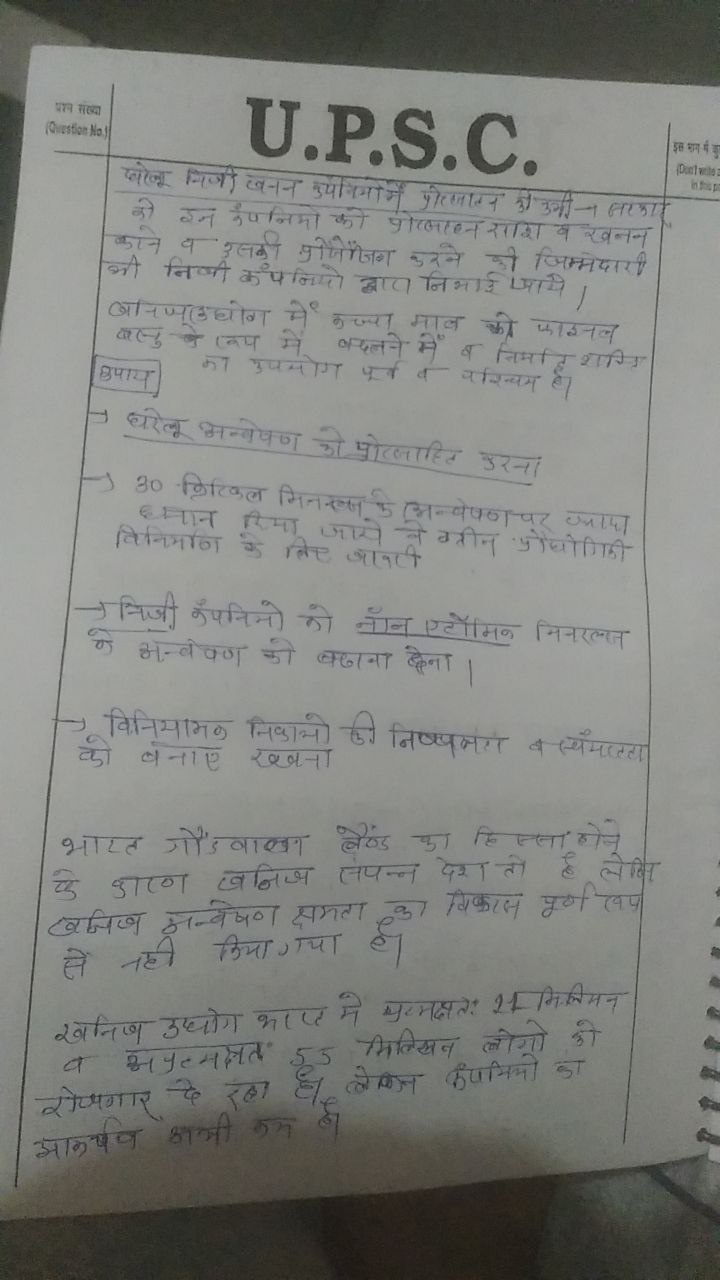 U.P.S.C.
प्रश्न संख्या
(Question No.)
इस भाग में कु
(Don't write a
in this p
घरेलू निजी खनन कंपनियों में प्रोत्साहन की कमी → सरकार
को इन कंपनियो को प्रोत्साहन राशि व खनन
करने व उसकी प्रोसेसिंग करने की जिम्मेदारी
भी निजी कंपनियो द्वारा निभाई जाये।
खनिज उद्योग में कच्चा माल को फाइनल
वस्तु के रूप में बदलने में व निर्माह शक्ति
का उपयोग पूर्व व परिश्रम है।
उपाय
→ घरेलू अन्वेषण को प्रोत्साहित करना
→ 30 क्रिटिकल मिनरल्स के अन्वेषण पर ज्यादा
ध्यान दिया जाये जो ग्रीन प्रौद्योगिकी
विनिर्माण के लिए जरूरी
→ निजी कंपनियो को नॉन एटॉमिक मिनरल्स
के अन्वेषण को बढावा देना।
→ विनियामक निकायो की निष्पक्षता व स्वायत्तता
को बनाए रखना
भारत गौंडवाना लैण्ड का हिस्सा होने
के कारण खनिज संपन्न देश तो है लेकिन
खनिज अन्वेषण क्षमता का विकास पूर्ण रूप
से नही किया गया है।
खनिज उद्योग भारत मे प्रत्यक्षत: 11 मिलियन
व अप्रत्यक्षत: 55 मिलियन लोगो को
रोजगार दे रहा है। लेकिन कंपनियो का
आकर्षण अभी कम है।